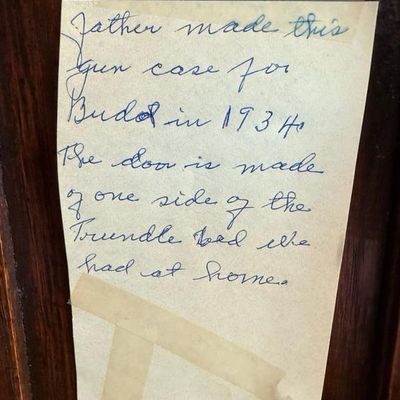 Father made this
gun case for
Budd in 1934.
The door is made
of one side of the
Trundle bed we
had at home.